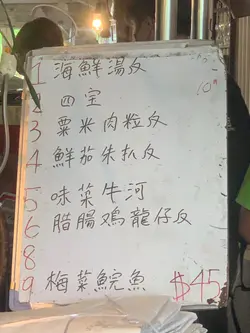 1 海鮮湯反
2 四宝
3 粟米肉粒反
4 鮮茄朱扒反
5 味菜牛河
6 腊腸鸡龍仔反
8
9 梅菜鯇魚 $45